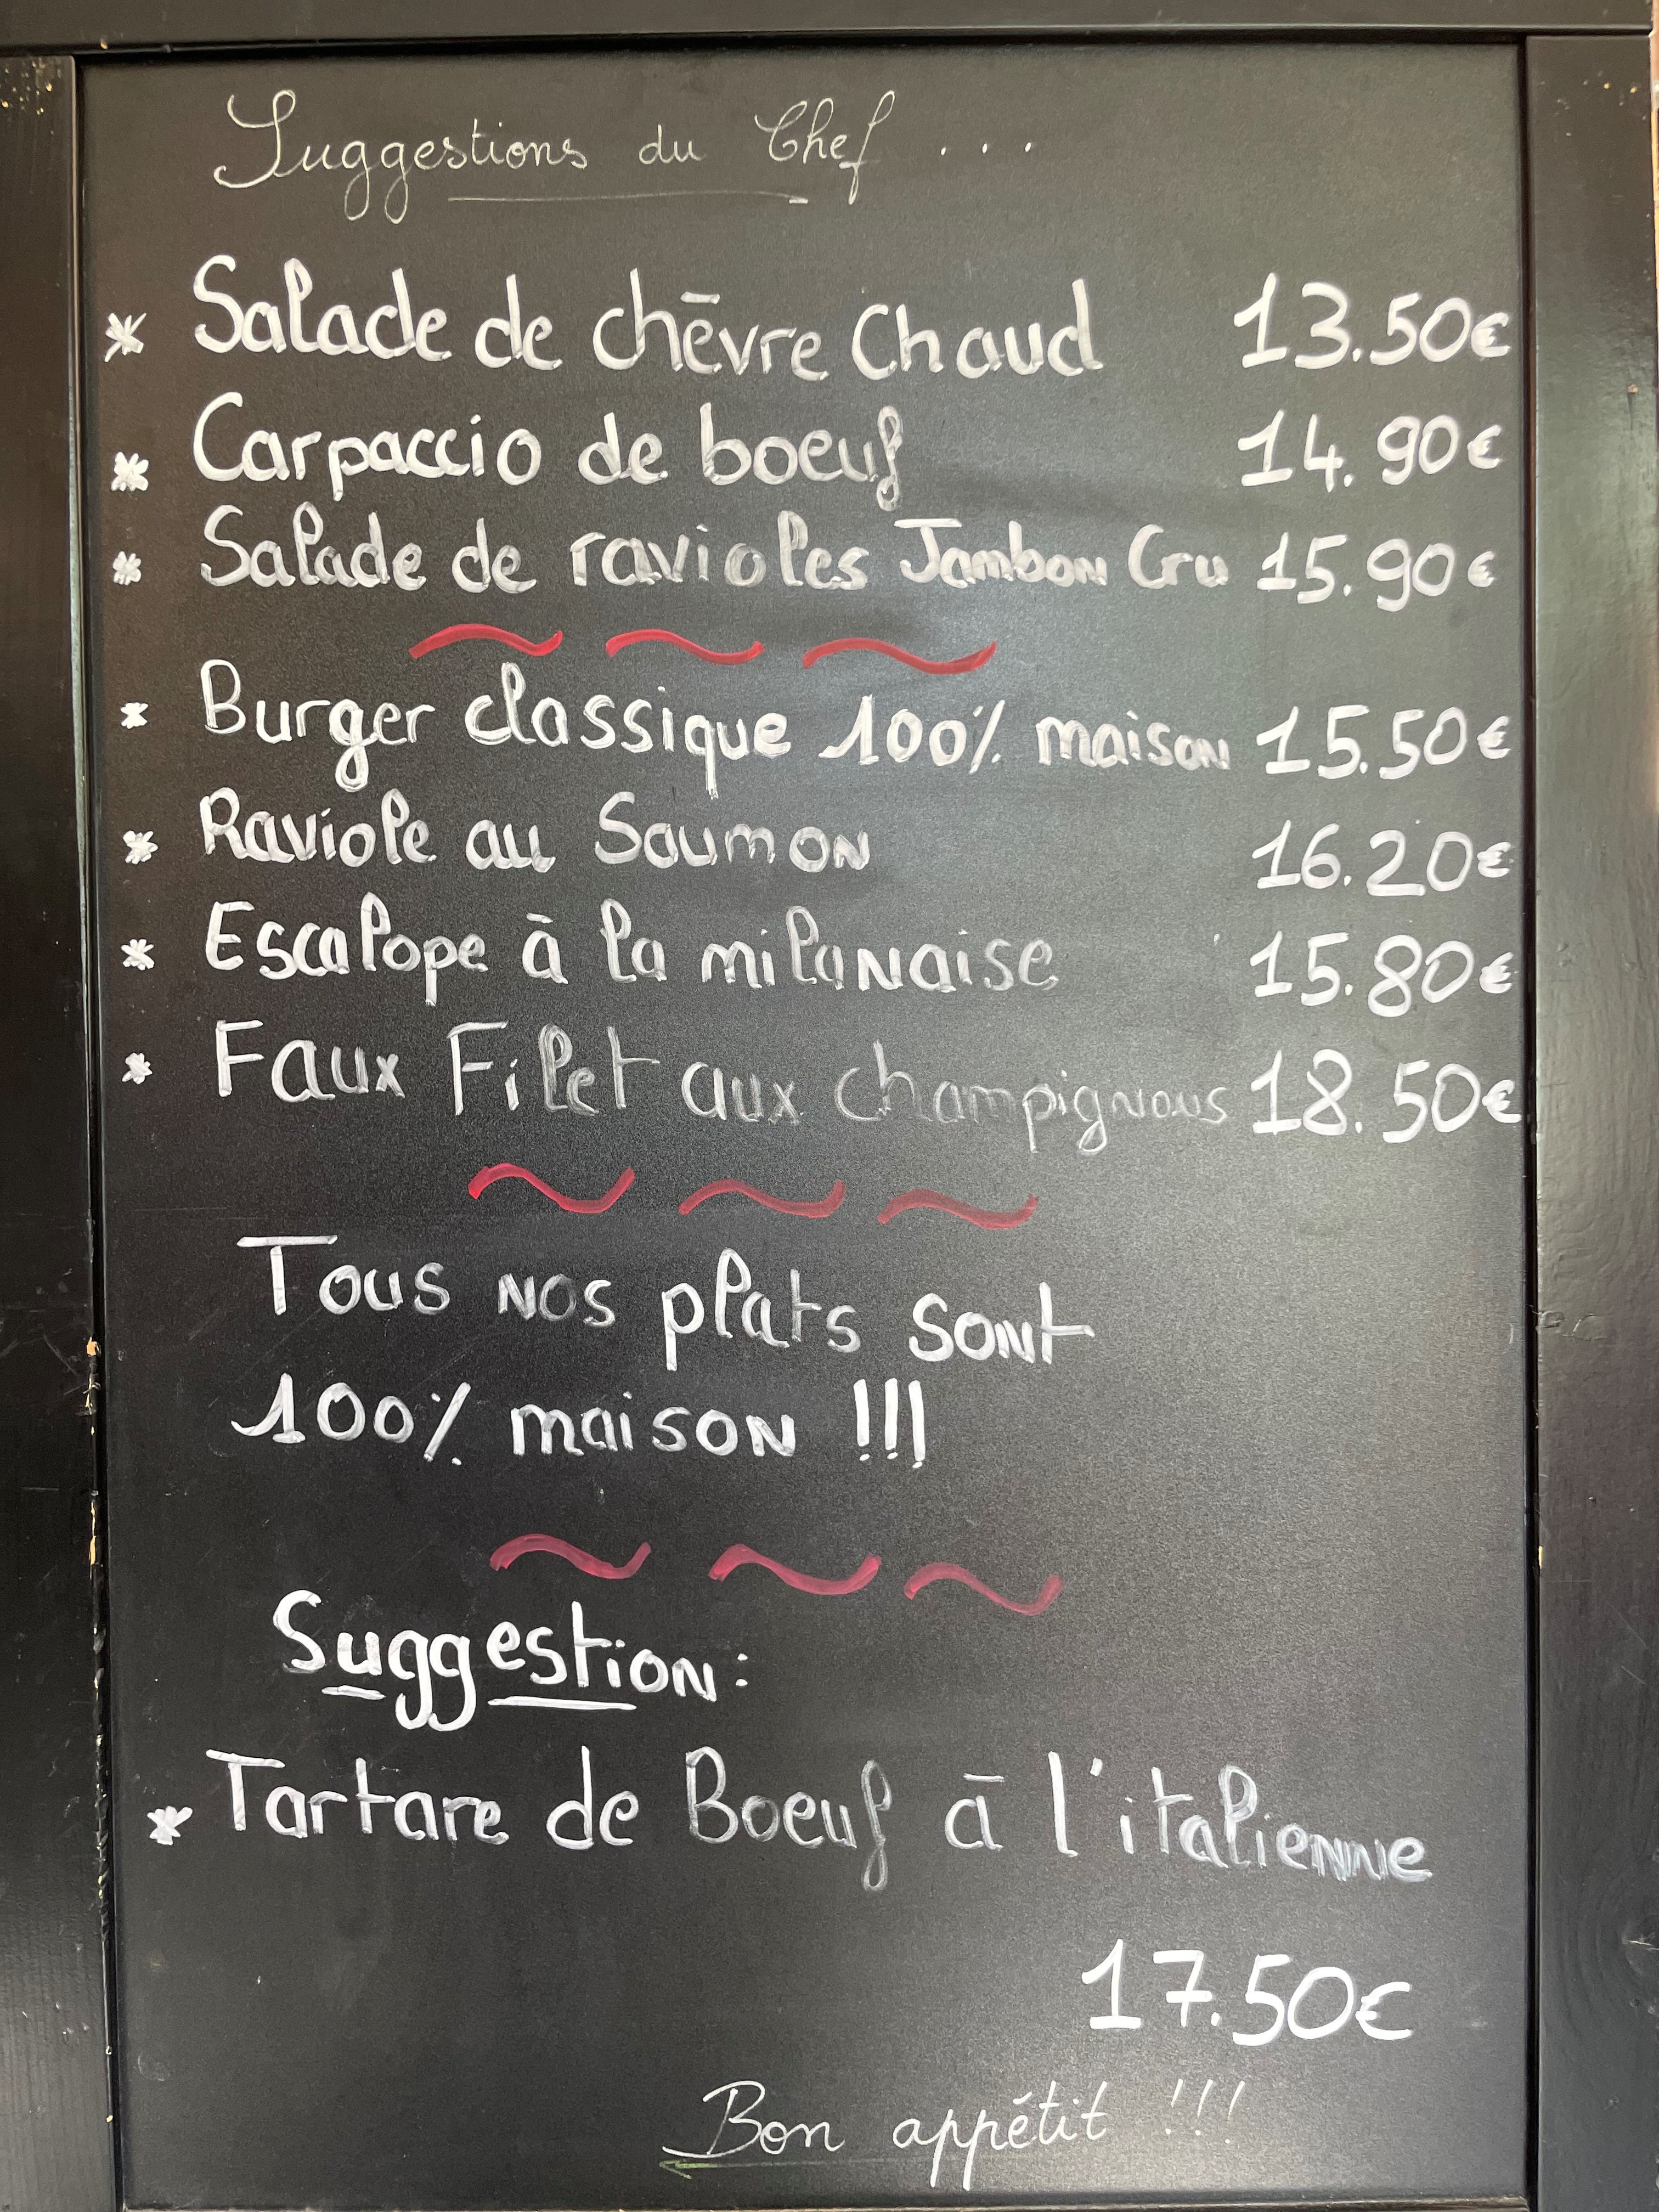 Suggestions du Chef ...
* Salade de chèvre Chaud 13.50€
* Carpaccio de boeuf 14.90€
* Salade de ravioles Jambon Cru 15.90€
* Burger classique 100% maison 15.50€
* Raviole au Saumon 16.20€
* Escalope à la milanaise 15.80€
* Faux Filet aux champignons 18.50€
Tous nos plats sont
100% maison !!!
Suggestion:
* Tartare de Boeuf à l'italienne
17.50€
Bon appétit !!!